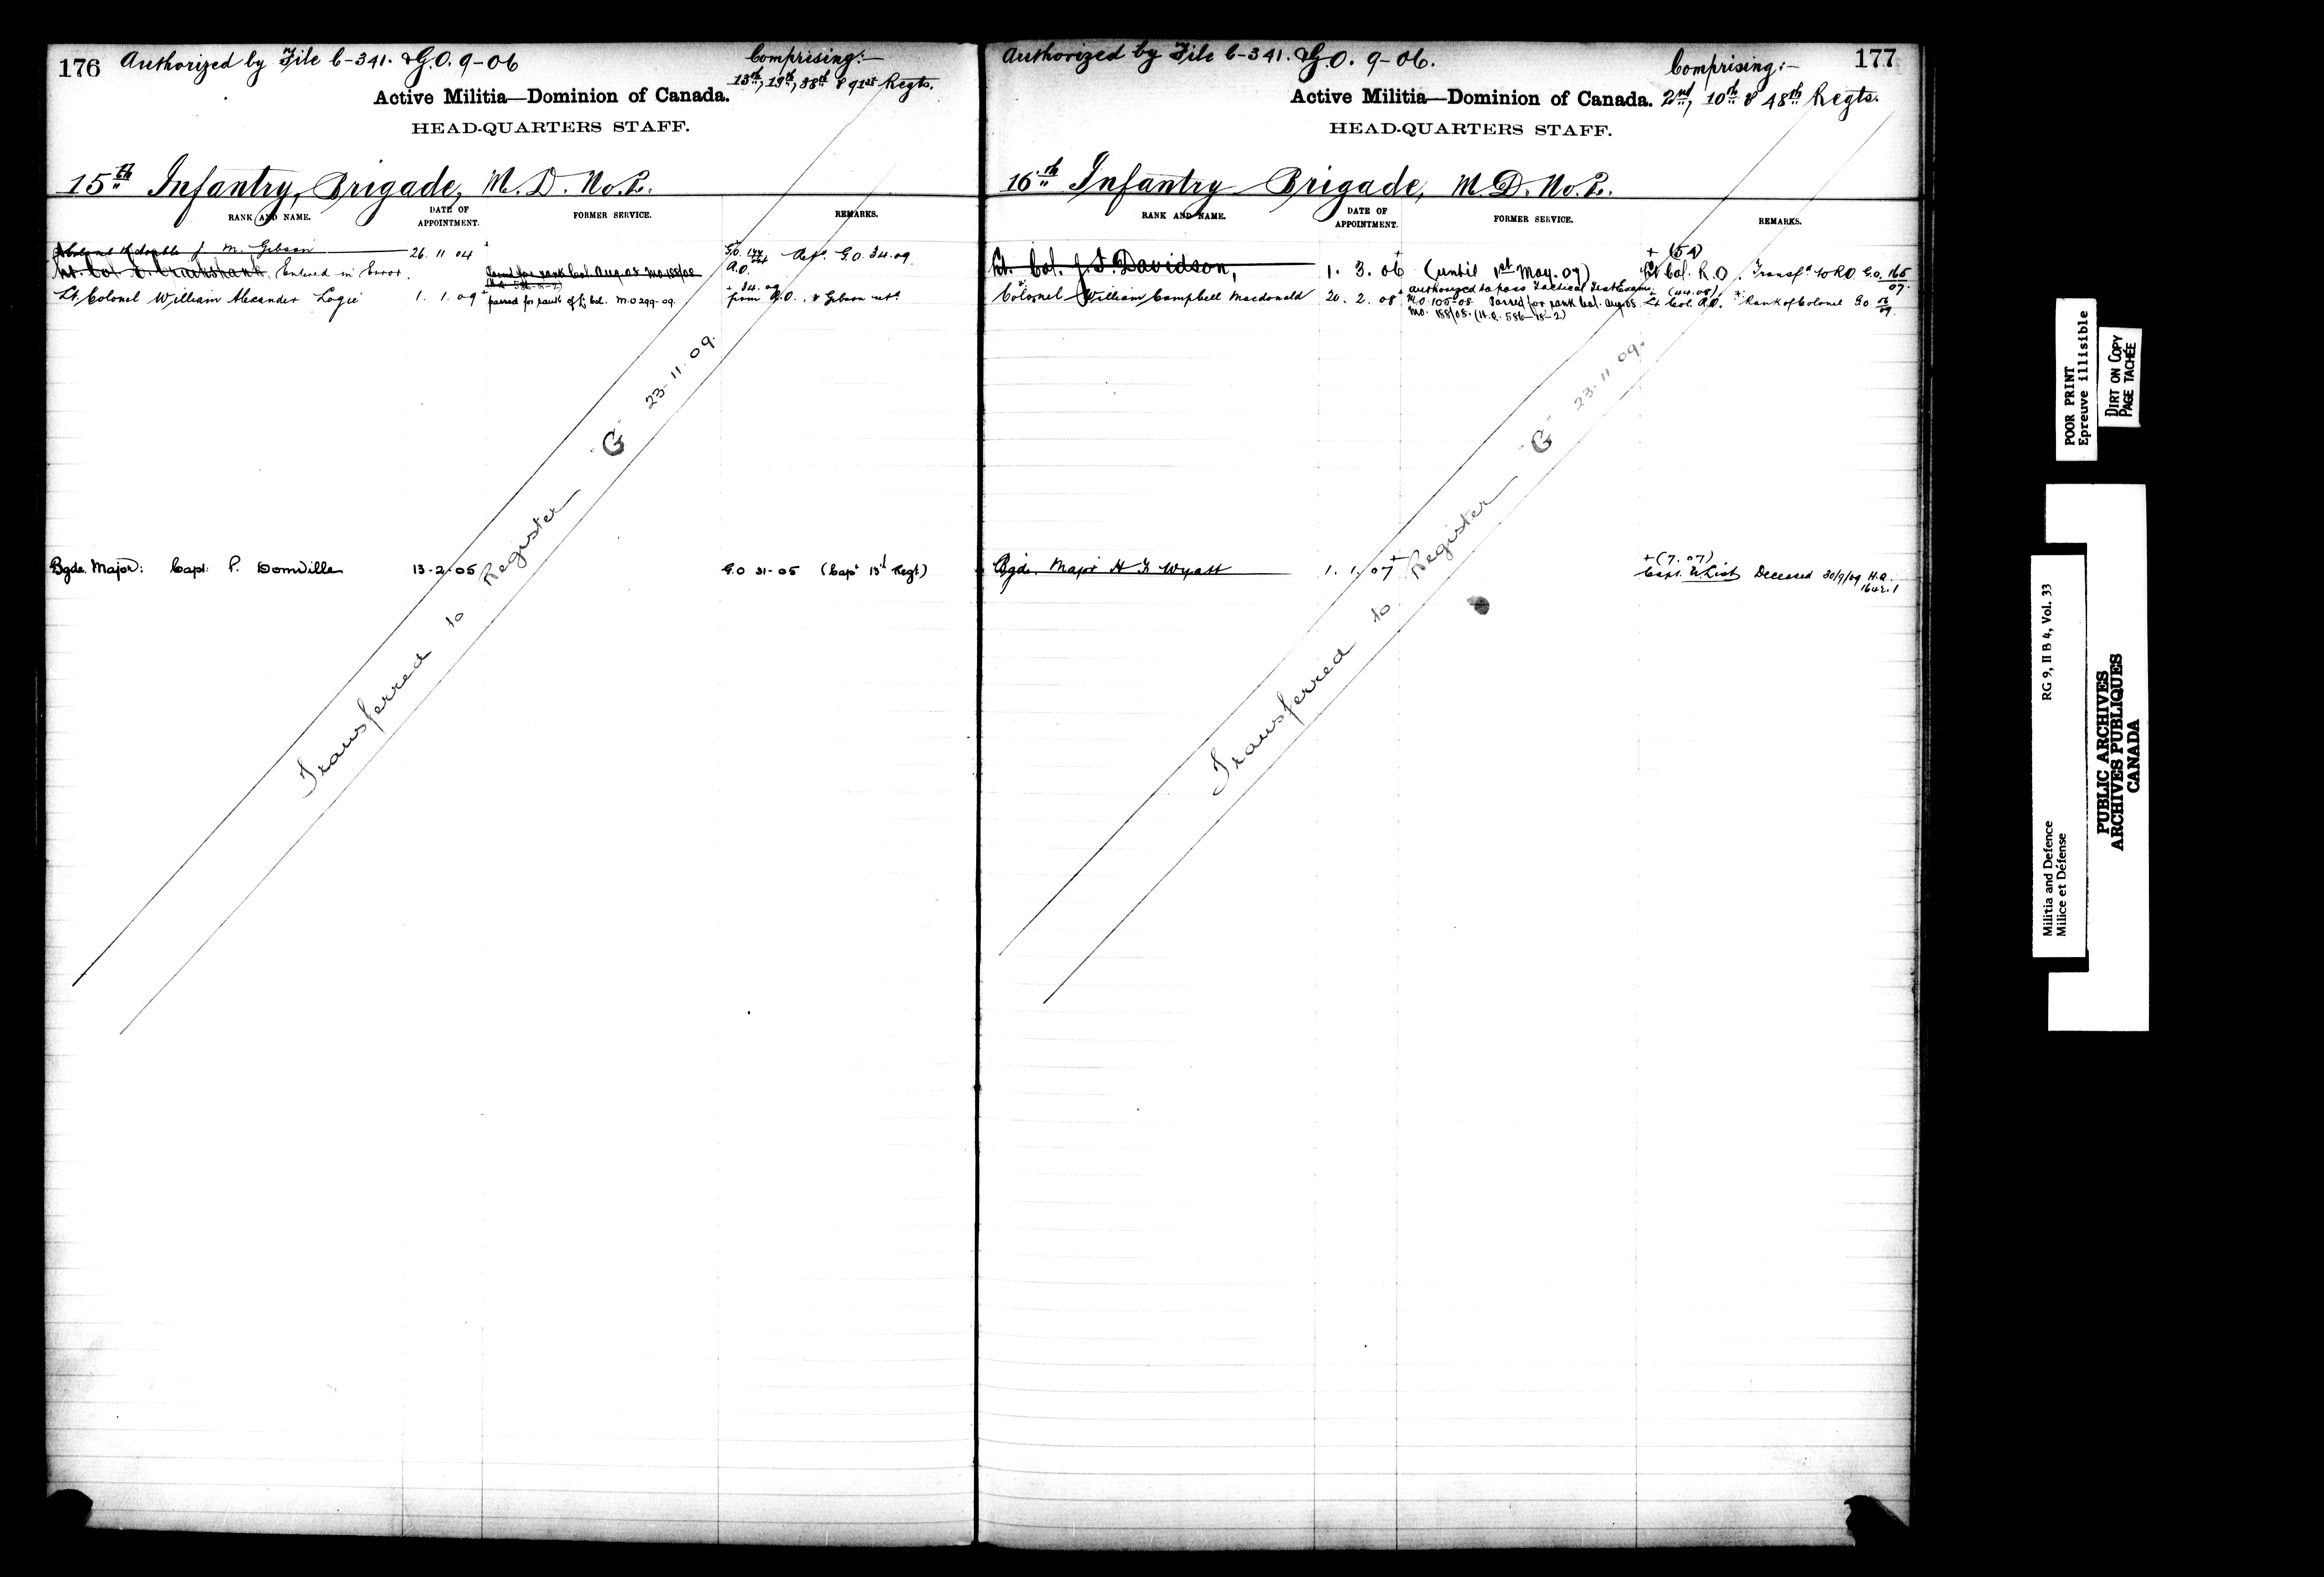 176 Authorized by File C-341. & G.O. 9-06
Comprising:-
13th, 19th, 38th & 91st Regts.
Active Militia—Dominion of Canada.
HEAD-QUARTERS STAFF.
15th Infantry, Brigade, M. D. No. 2.
RANK AND NAME. DATE OF APPOINTMENT. FORMER SERVICE. REMARKS.
J. M. Gibson 26. 11 04 G.O. Ret. G.O. 34.09.
Lt. Col. E. Cruikshank, Entered in Error. Passed for rank Col. Aug. 08 M.O. 188/08 R.O.
Lt. Colonel William Alexander Logie 1. 1. 09 passed for rank of Lt. Col. M.O 299-09. + 34. 09 from R.O., v Gibson retd.
Bgde. Major: Capt: P. Domville 13-2-05 G.O 31-05 (Capt 13th Regt)
Transferred to Register "G" 23-11-09.
Authorized by File C-341. & G.O. 9-06. 177
Comprising:-
Active Militia—Dominion of Canada. 2nd, 10th & 48th Regts.
HEAD-QUARTERS STAFF.
16th Infantry Brigade, M. D. No. 2.
RANK AND NAME. DATE OF APPOINTMENT. FORMER SERVICE. REMARKS.
+ (54)
Lt. Col. J. I. Davidson, 1. 3. 06 (until 1st May. 09) Lt Col. R.O. Transfd to R.O. G.O. 165/07.
authorized to pass Tactical Test Exam. (44.08)
Colonel William Campbell Macdonald 20. 2. 08 M.O. 105-08 Passed for rank Col. Aug 08 Lt Col. R.O. * Rank of Colonel G.O.
M.O. 188/08. (H.Q. 586-18-2)
+ (7. 07)
Bgde. Major H F Wyatt 1. 1. 07 Capt. U List Deceased 30/9/09 H.Q.
1642.1
Transferred to Register "G" 23-11 09.
POOR PRINT
Epreuve illisible
DIRT ON COPY
PAGE TACHÉE
Militia and Defence RG 9, II B 4, Vol. 33
Milice et Défense
PUBLIC ARCHIVES
ARCHIVES PUBLIQUES
CANADA